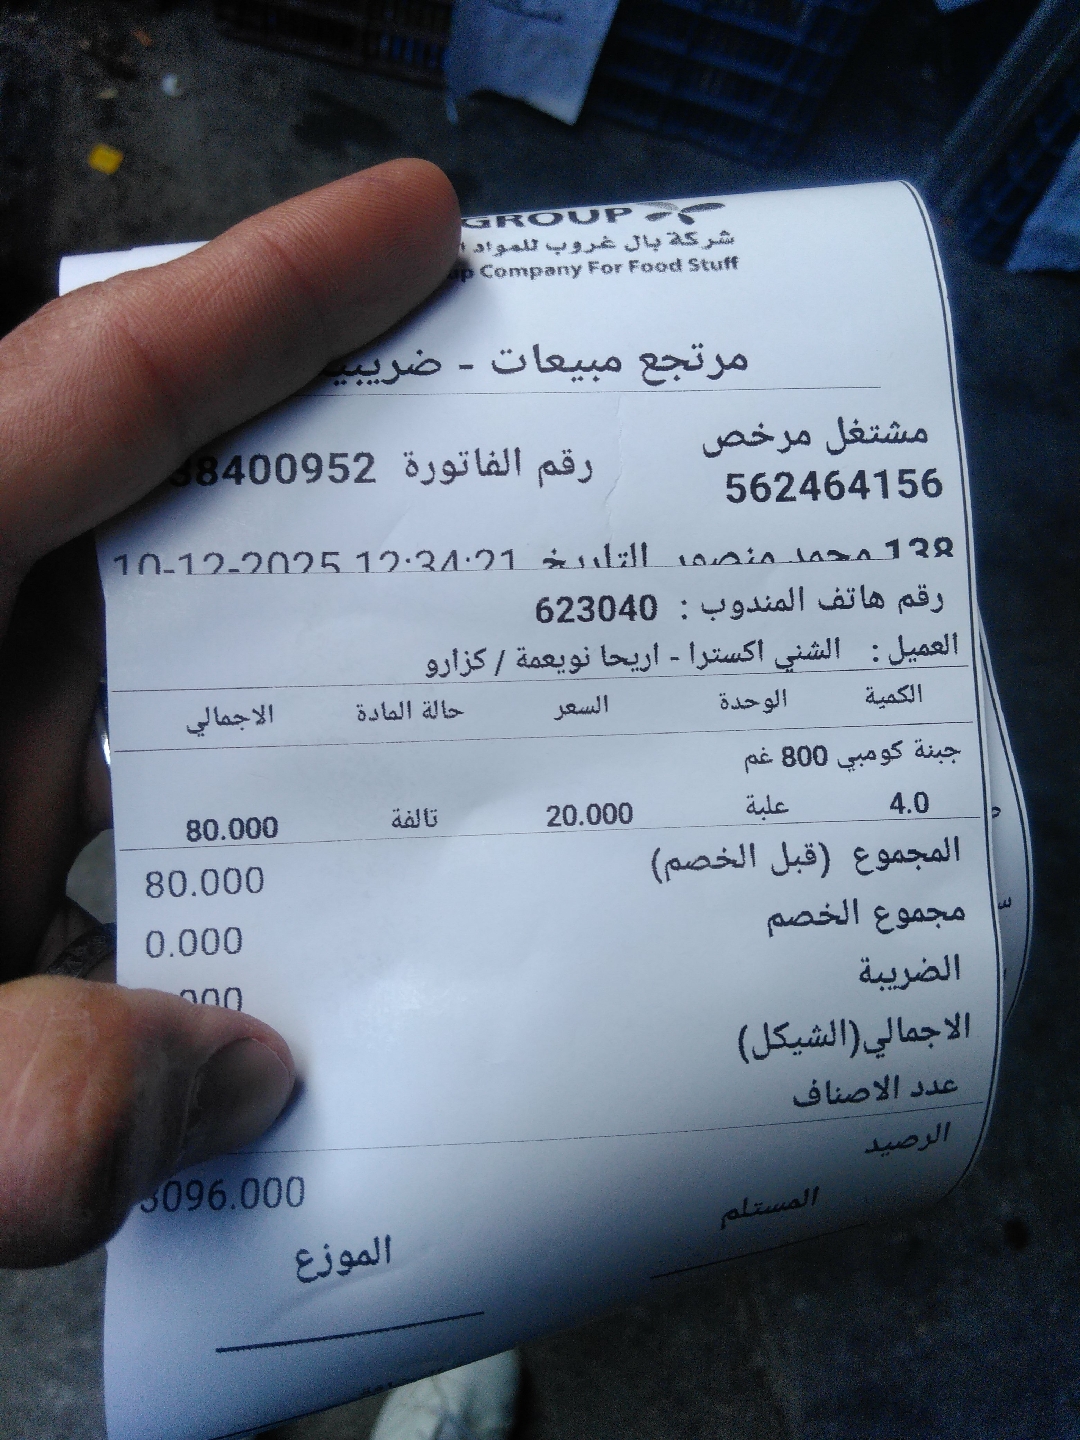 GROUP
شركة بال غروب للمواد
Company For Food Stuff
مرتجع مبيعات -
مشتغل مرخص
562464156
رقم الفاتورة
138 محمد منصور التاريخ 10-12-2025 12:34:21
رقم هاتف المندوب : 623040
العميل : الشني اكسترا - اريحا نويعمة / كزارو
الكمية الوحدة السعر حالة المادة الاجمالي
جبنة كومبي 800 غم
4.0 علبة 20.000 تالفة 80.000
المجموع (قبل الخصم) 80.000
مجموع الخصم 0.000
الضريبة
الاجمالي(الشيكل)
عدد الاصناف
الرصيد
المستلم
الموزع